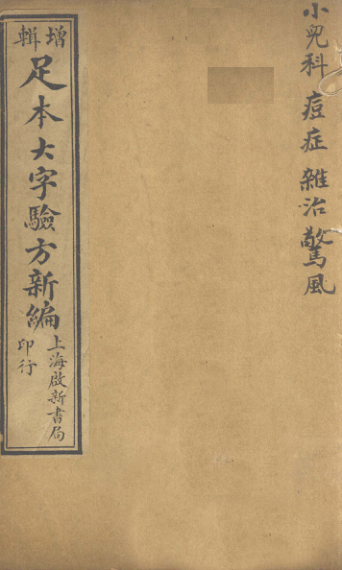 小兒科 痘症 雜治 驚風
增輯
足本大字驗方新編
上海啟新書局
印行